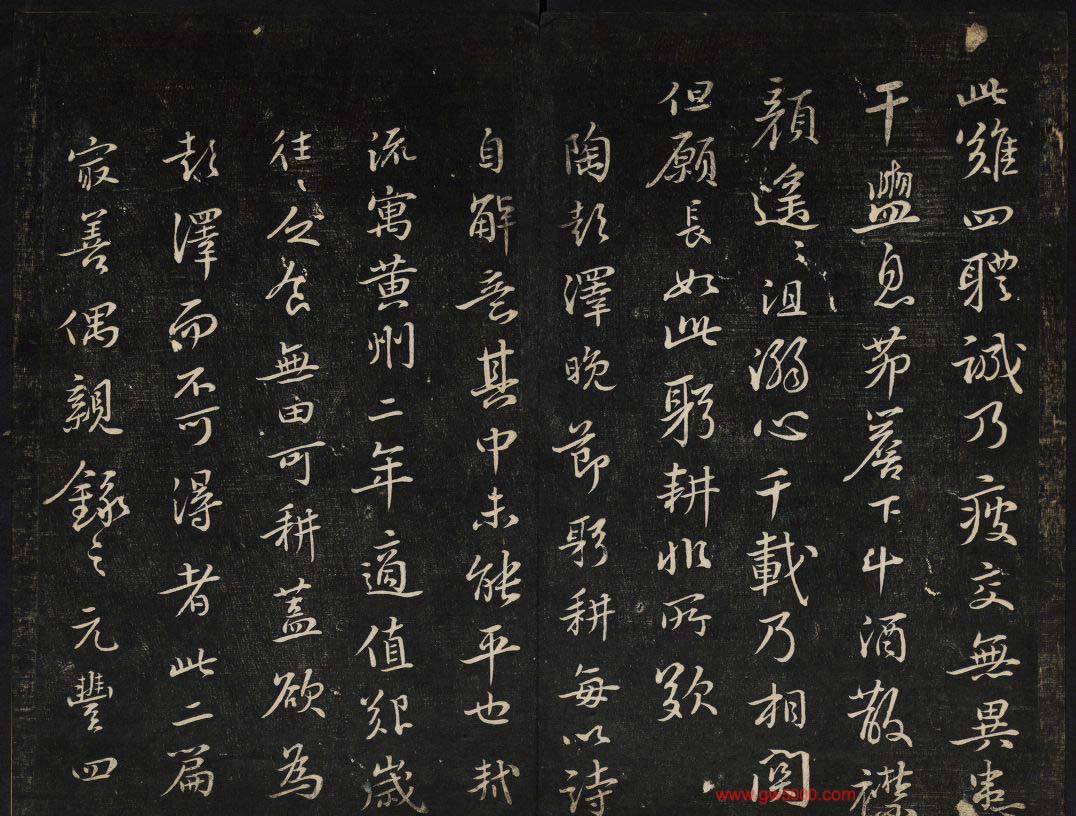 此難四軆誠乃疲交無異患
干盥息茆簷下斗酒散襟
顏遙〻沮溺心千載乃相關
但願長如此躬耕非所歎
陶彭澤晚節躬耕每以詩
自解意其中未能平也軾
流寓黃州二年適值艱歲
往〻乏食無田可耕蓋欲為
彭澤而不可得者此二篇
最善偶親錄之元豐四